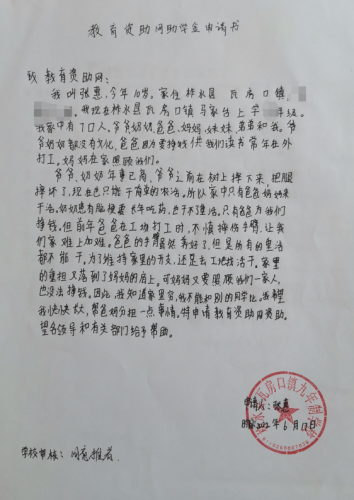 教育资助网助学金申请书
致 教育资助网:
我叫张惠,今年10岁,家住柞水县 瓦房口镇
我现在柞水县瓦房口镇马家台上学 年级。
我家中有7口人,爷爷奶奶,爸爸,妈妈,妹妹,弟弟和我。爷
爷奶奶都没有文化,爸爸因为要挣钱供我们读书常年在外
打工。妈妈在家照顾我们。
爷爷,奶奶年事已高,爷爷之前在树上摔下来,把腿
摔坏了,现在也只能干简单的农活。所以家中只有爸爸妈妈来
干活。奶奶患有脑梗要长年吃药,也干不重活。只有爸爸为我们
挣钱。但前年爸爸在工地打工时,不慎摔伤手臂,让我
们家难上加难。爸爸的手臂虽然养好了,但是所有的重活
都不能干。为了维持家里的开支,还是去工地找活干。家里
的重担又落到了妈妈的肩上,可妈妈又要照顾我们一家人,
也没法挣钱。因此,我知道家里穷,我不能和别的同学比。我希望
我快快长大,帮爸妈分担一点事情。特申请教育资助网资助。
望各领导和有关部门给予帮助。
申请人:张惠
2022年6月13日
学校审核: